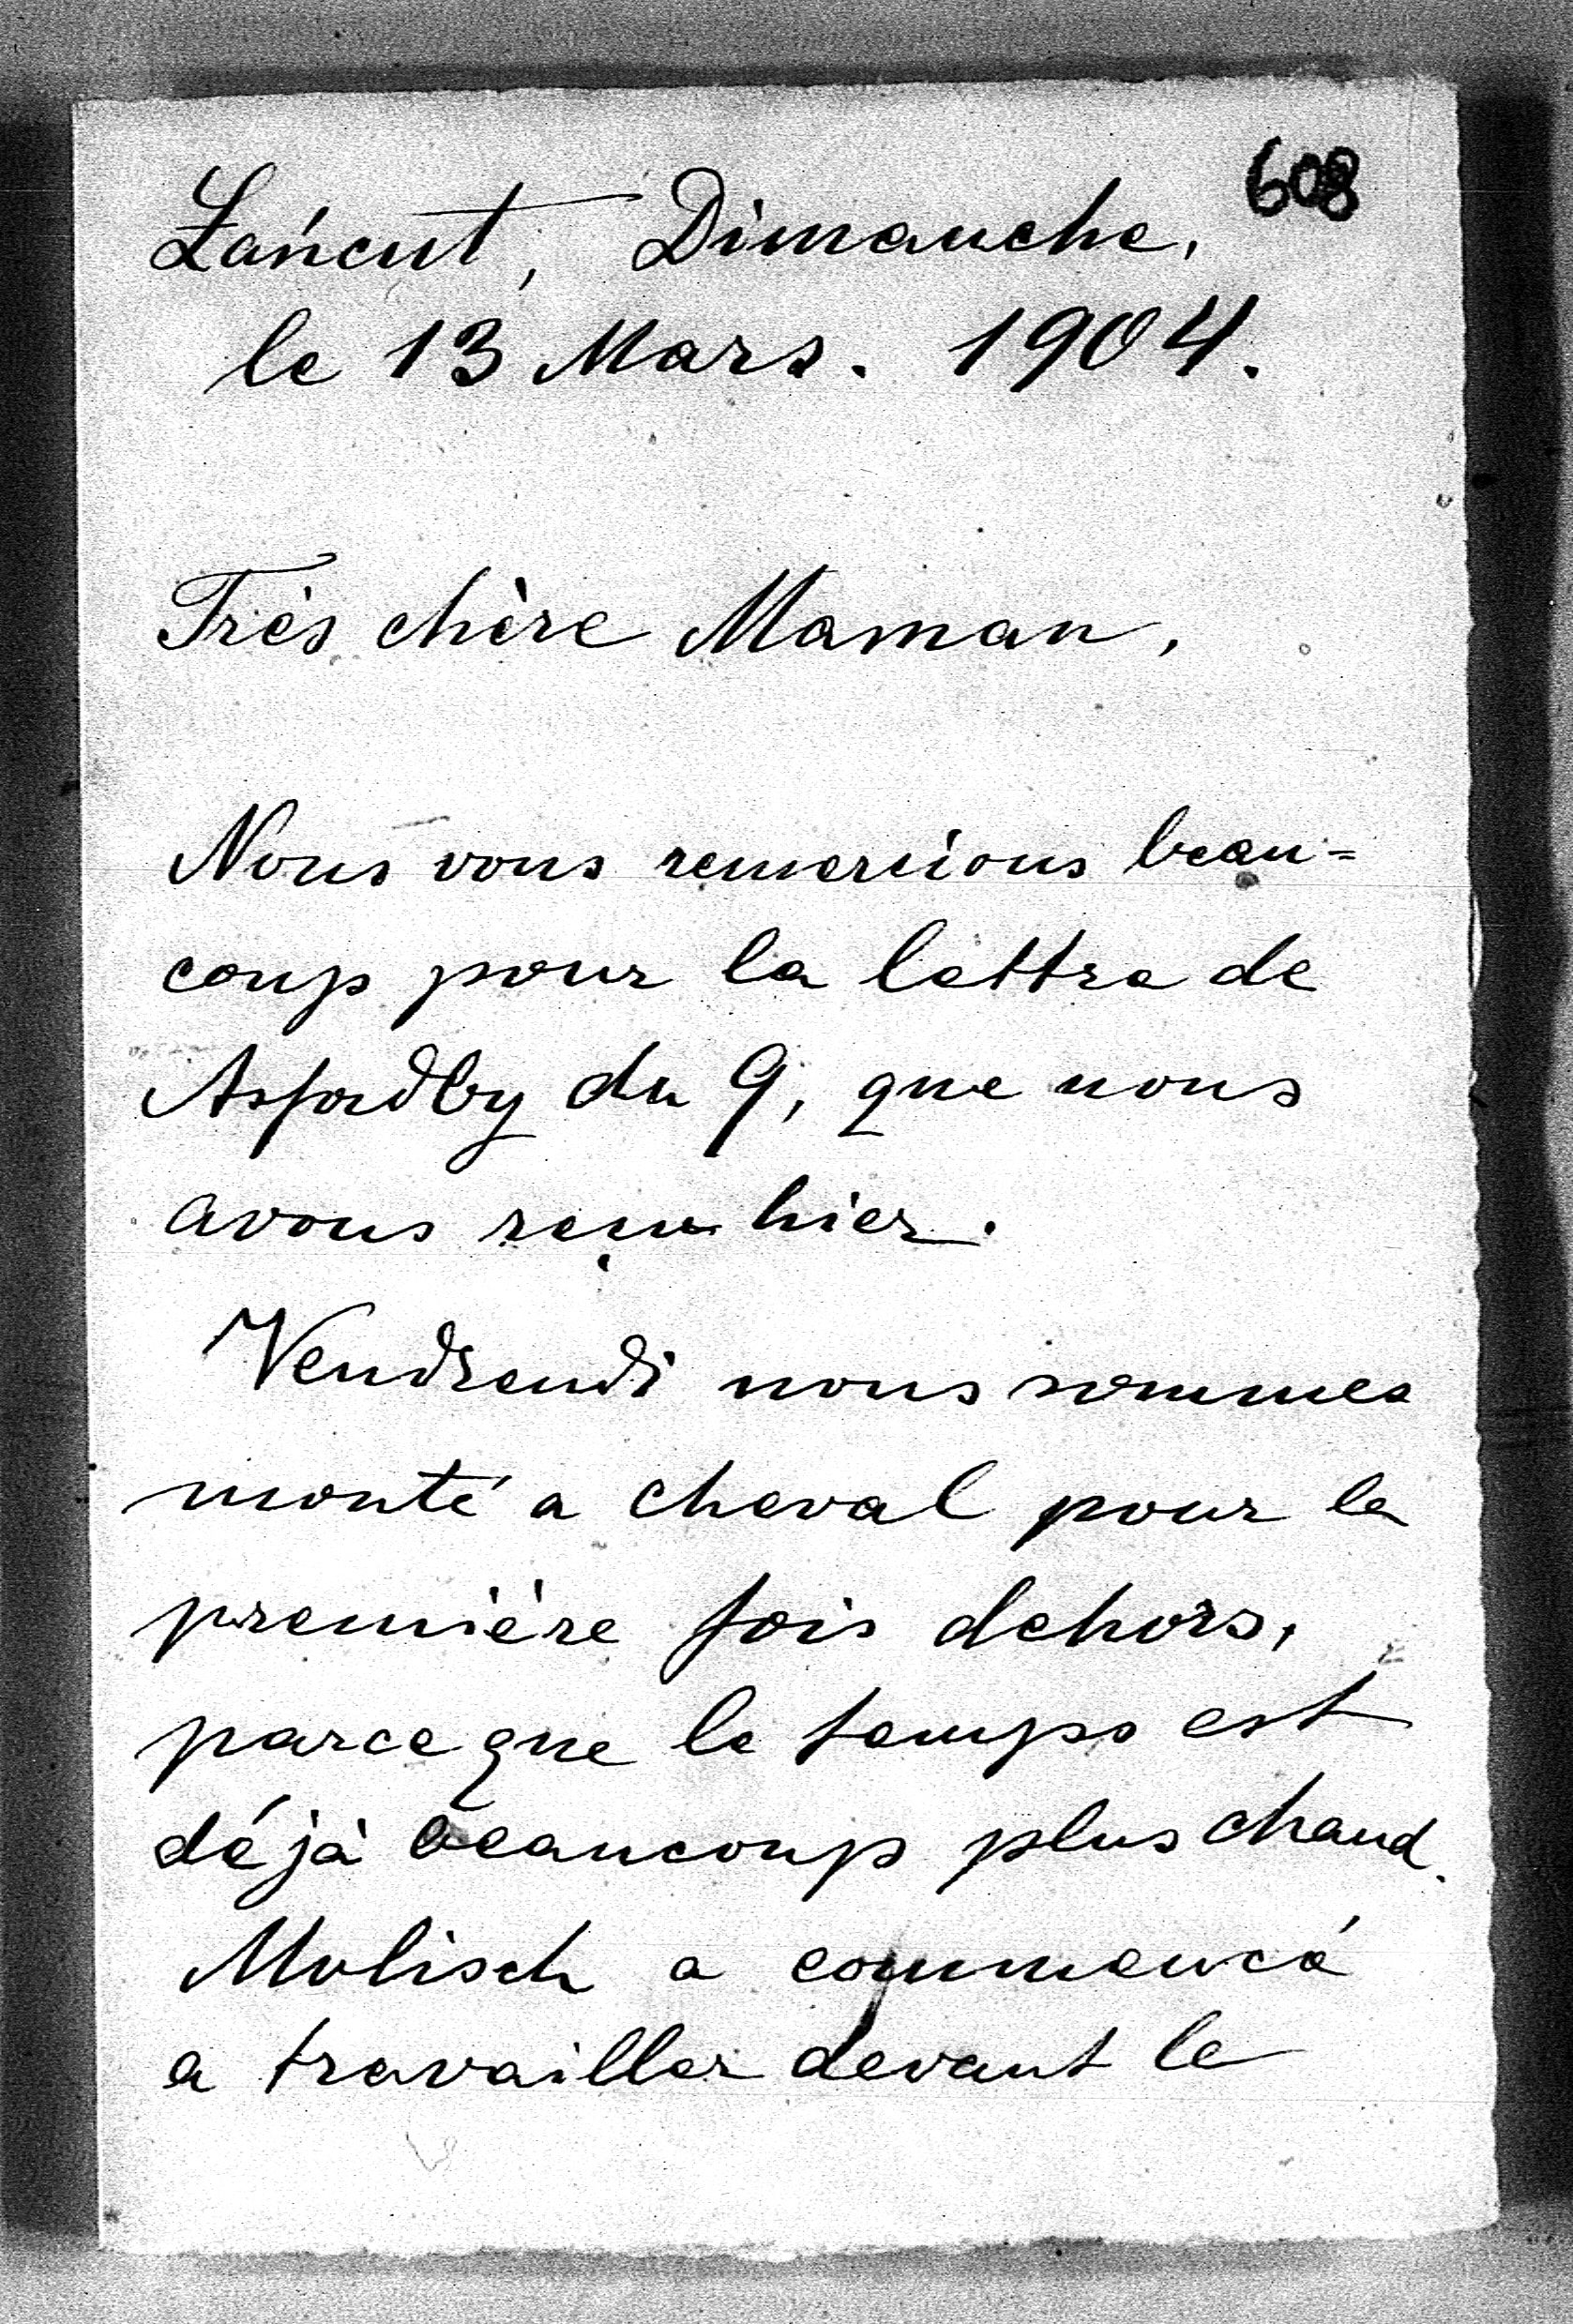 608
Łańcut, Dimanche,
le 13 Mars. 1904.
Très chère Maman,
Nous vous remercions beau=
coup pour la lettre de
Asfordby du 9, que nous
avons reçu hier.
Vendredi nous sommes
monté a cheval pour la
première fois dehors,
parceque le temps est
déjà beaucoup plus chaud.
Molisch a commencé
a travailler devant le